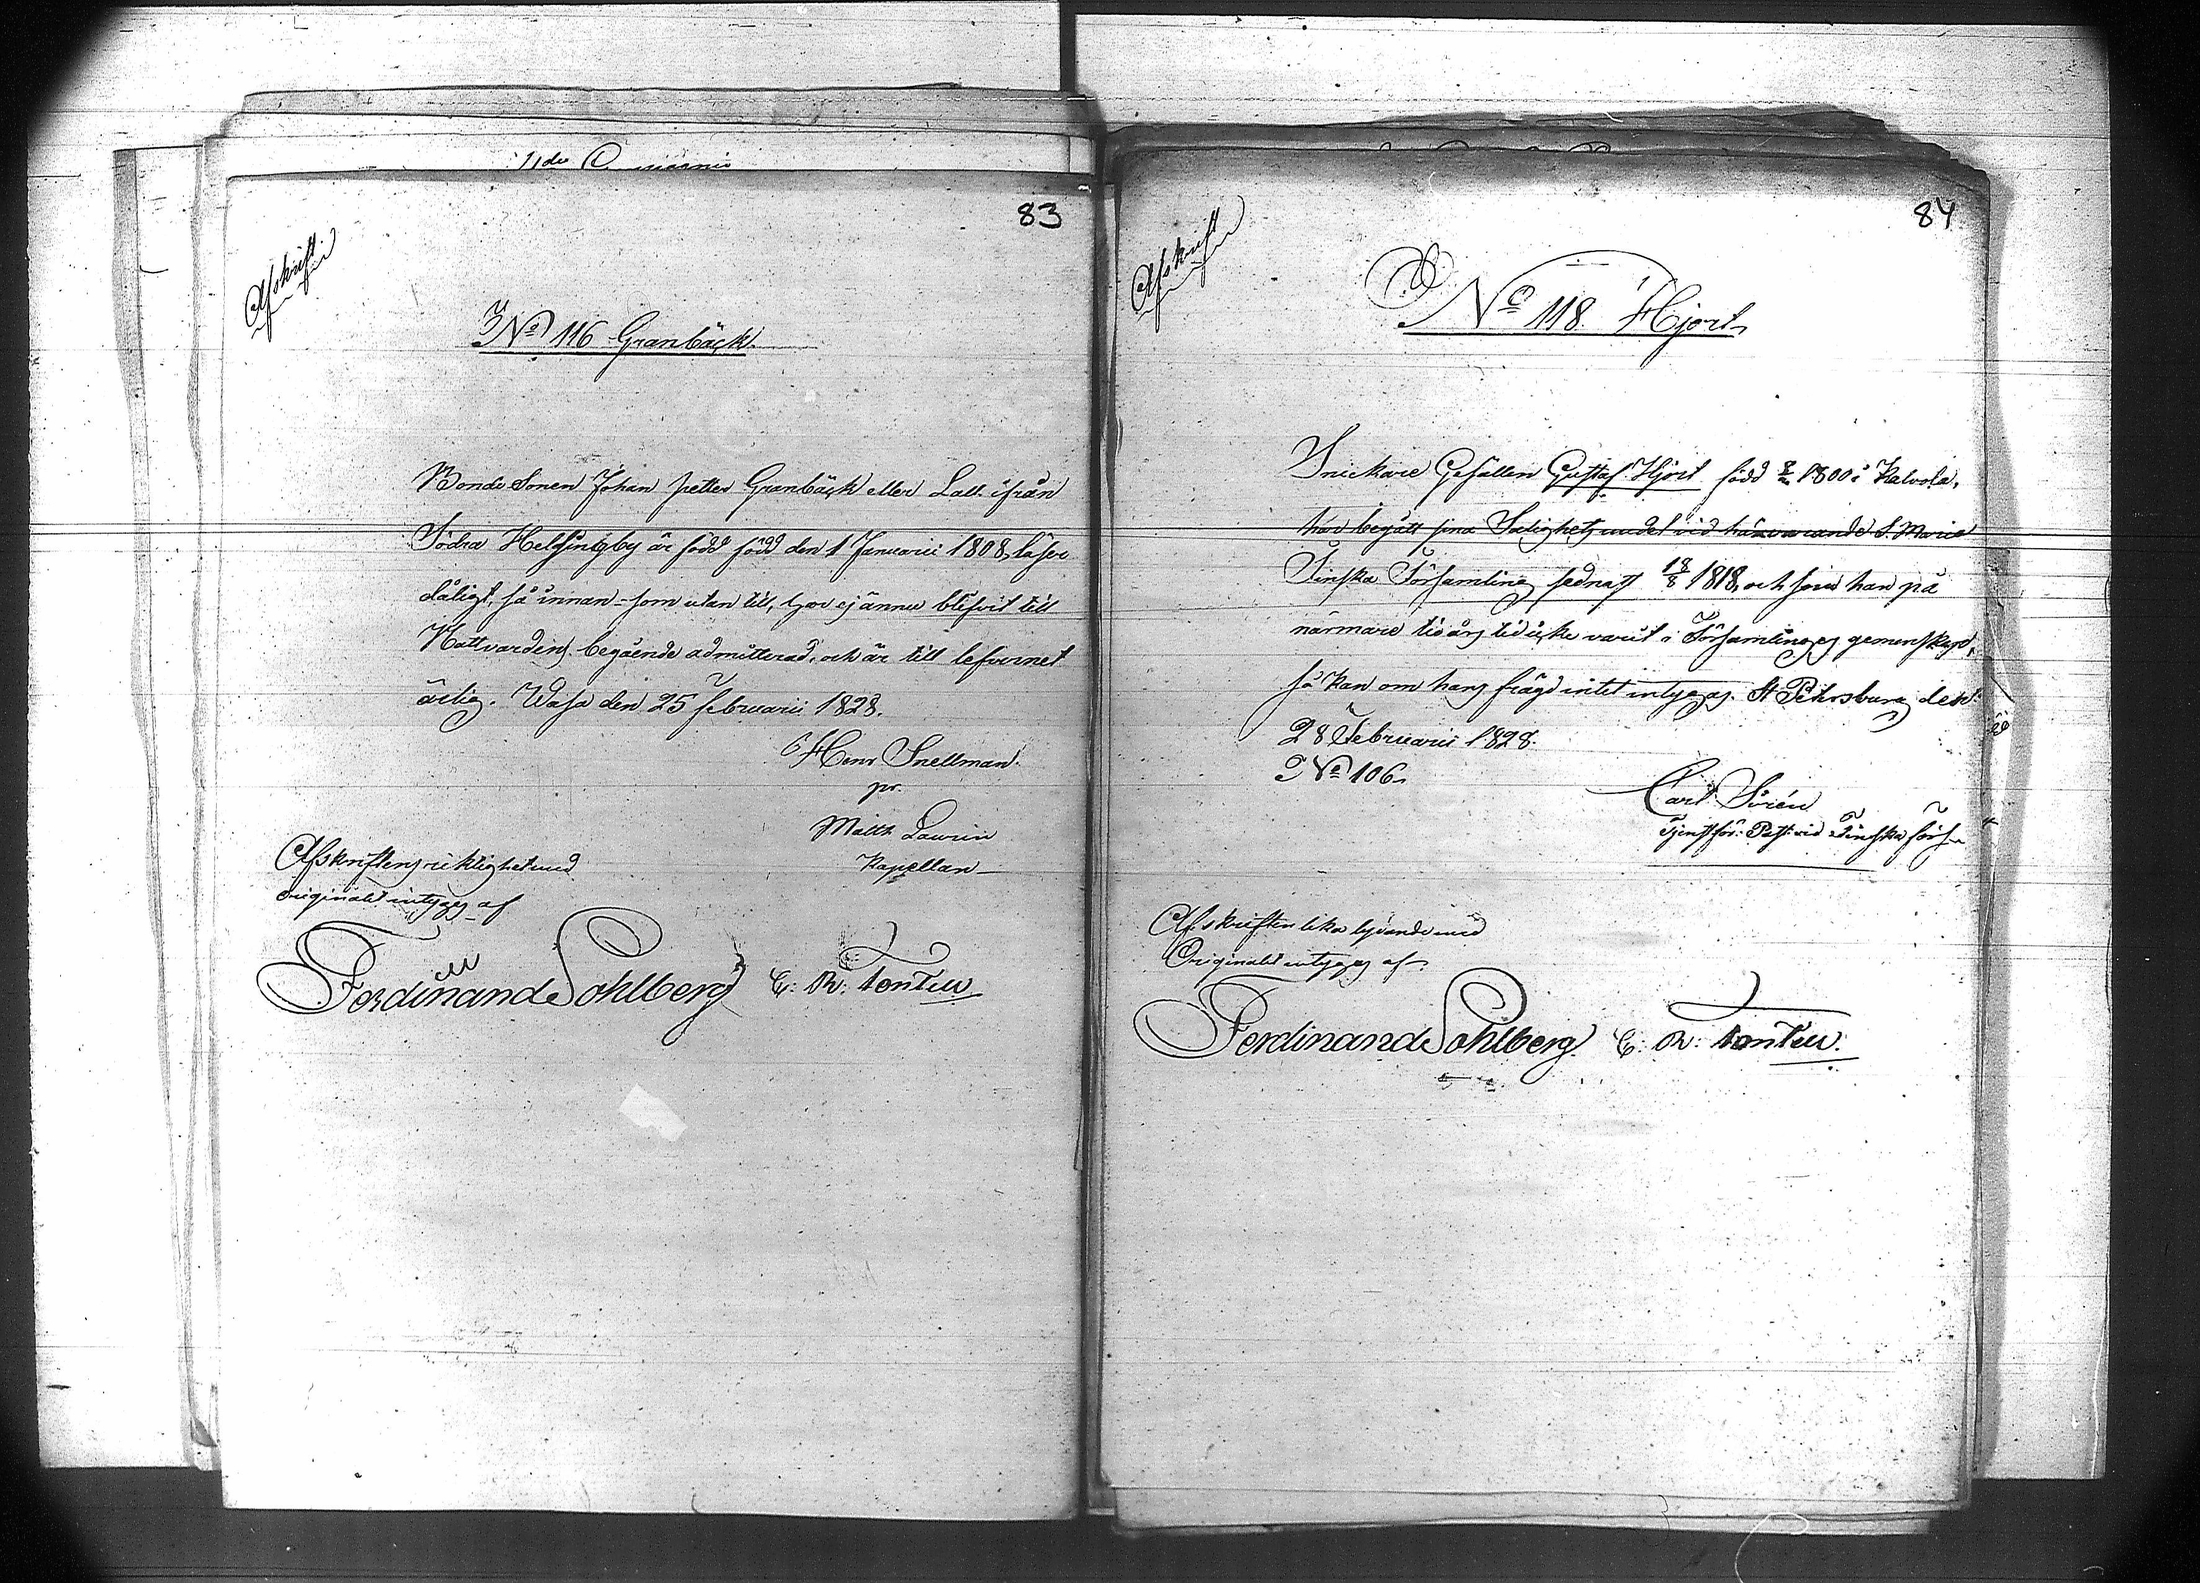 83
Afskrift
No 116 Granbäck
Bonde Sonen Johan Petter Granbäck eller Lall ifrån
Södra Helsingby är född född den 1 Januarii 1808, läser
dåligt, så innan- som utan till, har ej ännu blifvit till
Nattvardens begående admitterad, och är till lefvernet
ärlig. Wasa den 25 Februarii 1828.
Henr Snellman.
pr.
Matth Laurin
Kapellan
Afskriftens riktighet med
originalet intyga af
Ferdinand Sohlberg C: R: Tonteu
84
Afskrift
No 118. Hjort
Snickare Gesällen Gustaf Hjort född 1800 i Kalvola,
har begått sina Salighetsmedel vid härvarande S. Marie
Finska Församling sednast 18/8 1818, och som han på
närmare tio års tid icke varit i Församlingens gemenskap,
så kan om hans frägd intet intygas. St Petersburg den
28 Februarii 1828.
No 106.
Carl Sirén
Tjenstför: Past: vid Finska förs
Afskriften lika lydande med
Originalet intygas af
Ferdinand Sohlberg. C: R: Tonteu.